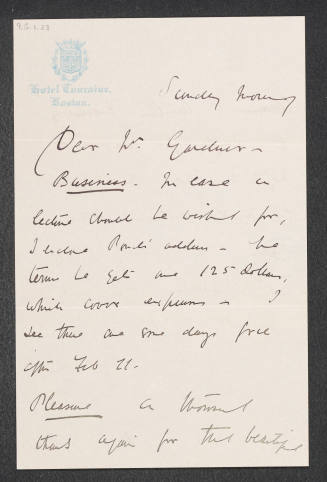 Hotel Touraine,
Boston.
Sunday Morning
Dear Mr. Gardner –
Business. In case a
lecture should be wished for,
I enclose Pond's address – the
terms he gets are 125 dollars,
which cover expenses – I
see there are some days free
after Feb 21.
Pleasure – a thousand
thanks again for that beautiful